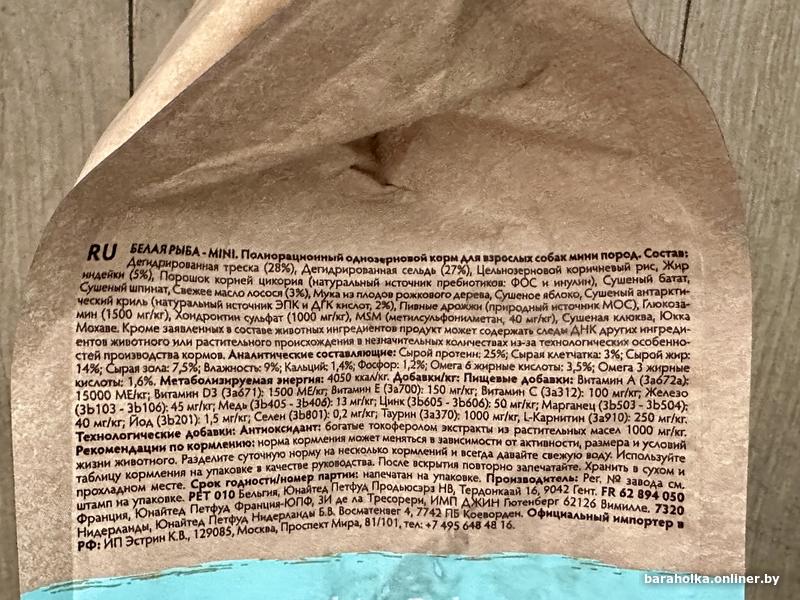 RU БЕЛАЯ РЫБА - MINI. Полнорационный однозерновой корм для взрослых собак мини пород. Состав:
Дегидрированная треска (28%), Дегидрированная сельдь (27%), Цельнозерновой коричневый рис, Жир
индейки (5%), Порошок корней цикория (натуральный источник пребиотиков: ФОС и инулин), Сушеный батат,
Сушеный шпинат, Свежее масло лосося (3%), Мука из плодов рожкового дерева, Сушеное яблоко, Сушеный антаркти-
ческий криль (натуральный источник ЭПК и ДГК кислот, 2%), Пивные дрожжи (природный источник МОС), Глюкоза-
мин (1500 мг/кг), Хондроитин сульфат (1000 мг/кг), MSM (метилсульфонилметан, 40 мг/кг), Сушеная клюква, Юкка
Мохаве. Кроме заявленных в составе животных ингредиентов продукт может содержать следы ДНК других ингреди-
ентов животного или растительного происхождения в незначительных количествах из-за технологических особенно-
стей производства кормов. Аналитические составляющие: Сырой протеин: 25%; Сырая клетчатка: 3%; Сырой жир:
14%; Сырая зола: 7,5%; Влажность: 9%; Кальций: 1,4%; Фосфор: 1,2%; Омега 6 жирные кислоты: 3,5%; Омега 3 жирные
кислоты: 1,6%. Метаболизируемая энергия: 4050 ккал/кг. Добавки/кг: Пищевые добавки: Витамин А (3a672a):
15000 МЕ/кг; Витамин D3 (3a671): 1500 МЕ/кг; Витамин Е (3a700): 150 мг/кг; Витамин С (3a312): 100 мг/кг; Железо
(3b103 - 3b106): 45 мг/кг; Медь (3b405 - 3b406): 13 мг/кг; Цинк (3b605 - 3b606): 50 мг/кг; Марганец (3b503 - 3b504):
40 мг/кг; Йод (3b201): 1,5 мг/кг; Селен (3b801): 0,2 мг/кг; Таурин (3a370): 1000 мг/кг, L-Карнитин (3a910): 250 мг/кг.
Технологические добавки: Антиоксидант: богатые токоферолом экстракты из растительных масел 1000 мг/кг.
Рекомендации по кормлению: норма кормления может меняться в зависимости от активности, размера и условий
жизни животного. Разделите суточную норму на несколько кормлений и всегда давайте свежую воду. Используйте
таблицу кормления на упаковке в качестве руководства. После вскрытия повторно запечатайте. Хранить в сухом и
прохладном месте. Срок годности/номер партии: напечатан на упаковке. Производитель: Рег. № завода см.
штамп на упаковке. PET 010 Бельгия, Юнайтед Петфуд Продьюсэрз НВ, Тердонкаай 16, 9042 Гент. FR 62 894 050
Франция, Юнайтед Петфуд Франция-ЮПФ, ЗИ де ла Тресорери, ИМП ДЖИН Гютенберг 62126 Вимилле. 7320
Нидерланды, Юнайтед Петфуд Нидерланды Б.В. Восматенвег 4, 7742 ПБ Коеворден. Официальный импортер в
РФ: ИП Эстрин К.В., 129085, Москва, Проспект Мира, 81/101, тел: +7 495 648 48 16.
baraholka.onliner.by